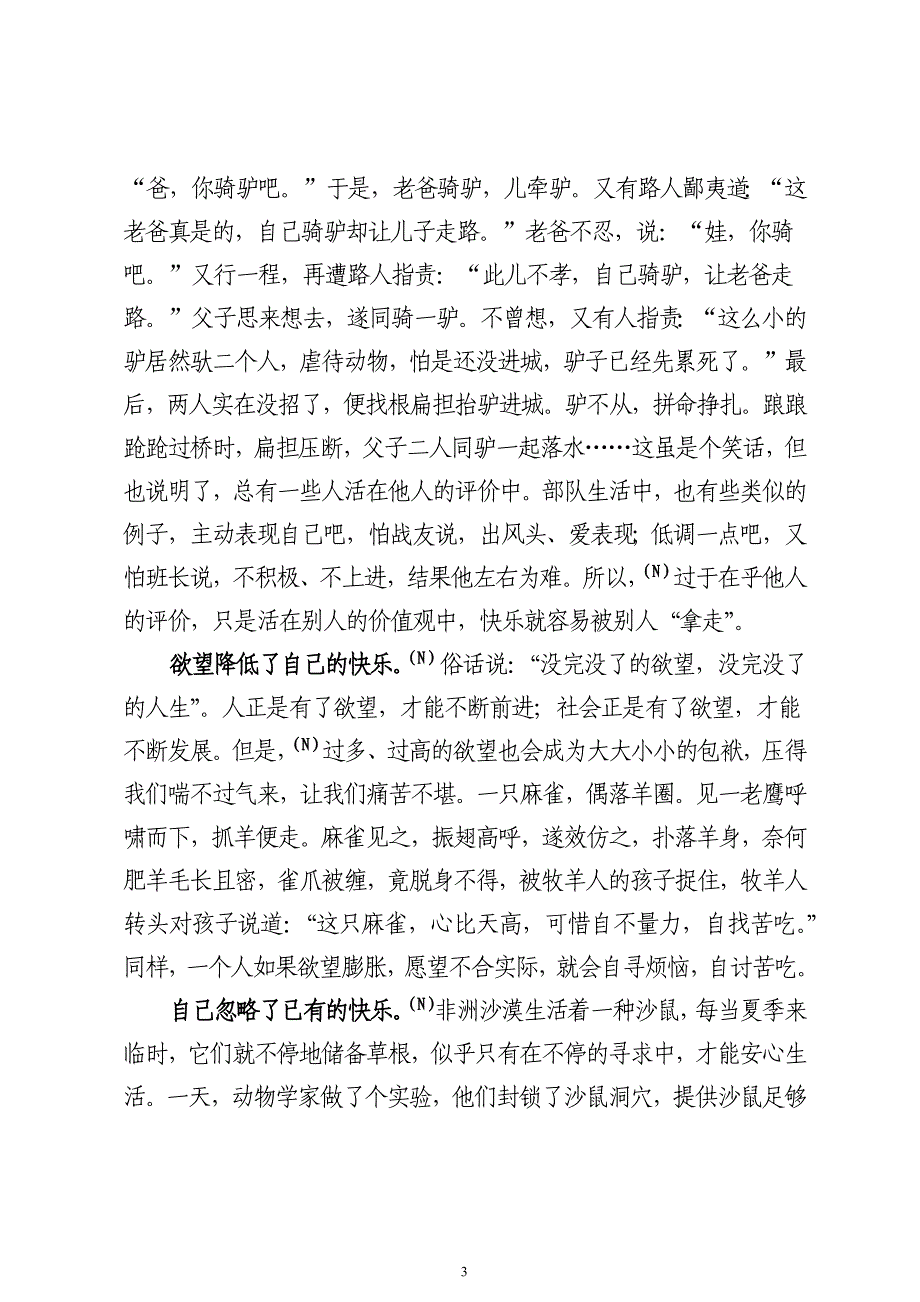 “爸，你骑驴吧。”于是，老爸骑驴，儿牵驴。又有路人鄙夷道：“这
老爸真是的，自己骑驴却让儿子走路。”老爸不忍，说：“娃，你骑
吧。”又行一程，再遭路人指责：“此儿不孝，自己骑驴，让老爸走
路。”父子思来想去，遂同骑一驴。不曾想，又有人指责：“这么小的
驴居然驮二个人，虐待动物，怕是还没进城，驴子已经先累死了。”最
后，两人实在没招了，便找根扁担抬驴进城。驴不从，拼命挣扎。踉踉
跄跄过桥时，扁担压断，父子二人同驴一起落水……这虽是个笑话，但
也说明了，总有一些人活在他人的评价中。部队生活中，也有些类似的
例子，主动表现自己吧，怕战友说，出风头、爱表现；低调一点吧，又
怕班长说，不积极、不上进，结果他左右为难。所以，(N)过于在乎他人
的评价，只是活在别人的价值观中，快乐就容易被别人“拿走”。
欲望降低了自己的快乐。(N)俗话说：“没完没了的欲望，没完没了
的人生”。人正是有了欲望，才能不断前进；社会正是有了欲望，才能
不断发展。但是，(N)过多、过高的欲望也会成为大大小小的包袱，压得
我们喘不过气来，让我们痛苦不堪。一只麻雀，偶落羊圈。见一老鹰呼
啸而下，抓羊便走。麻雀见之，振翅高呼，遂效仿之，扑落羊身，奈何
肥羊毛长且密，雀爪被缠，竟脱身不得，被牧羊人的孩子捉住，牧羊人
转头对孩子说道：“这只麻雀，心比天高，可惜自不量力，自找苦吃。”
同样，一个人如果欲望膨胀，愿望不合实际，就会自寻烦恼，自讨苦吃。
自己忽略了已有的快乐。(N)非洲沙漠生活着一种沙鼠，每当夏季来
临时，它们就不停地储备草根，似乎只有在不停的寻求中，才能安心生
活。一天，动物学家做了个实验，他们封锁了沙鼠洞穴，提供沙鼠足够
3